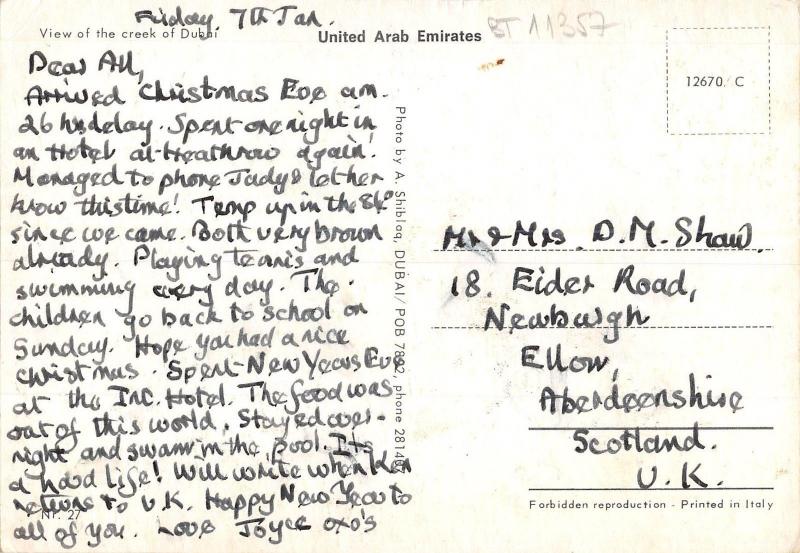 Friday, 7th Jan.
View of the creek of Dubai
United Arab Emirates
BT 11357
12670. C
Dear All,
Arrived Christmas Eve am.
26 hr delay. Spent one night in
an Hotel at Heathrow again!
Managed to phone Judy & let her
know this time! Temp up in the 84°
since we came. Both very brown
already. Playing tennis and
swimming every day. The
children go back to school on
Sunday. Hope you had a nice
christmas. Spent New Years Eve
at the Inc. Hotel. The food was
out of this world. Stayed over-
night and swam in the pool. Its
a hard life! Will write when Ken
returns to U.K. Happy New Year to
all of you. Love Joyce oxo's
Nr. 27
Photo by A. Shiblaq, DUBAI/ POB 7892, phone 2814
Mr & Mrs. D.M. Shaw.
18. Eider Road,
Newburgh
Ellow,
Aberdeenshire
Scotland.
U.K.
Forbidden reproduction - Printed in Italy